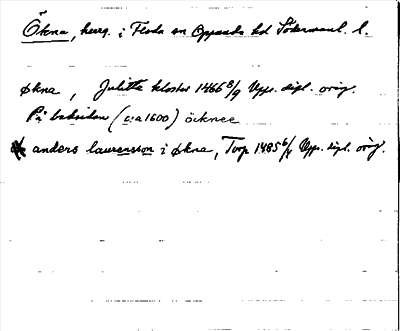 Ökna, herrg. i Floda sn Oppunda hd Södermanl. l.
økna, Julitta kloster 1466 8/9 Upps. dipl. orig.
På baksidan (c:a 1600) öcknee
anders laurensson i økna, Torp 1485 6/1 Upps. dipl. orig.